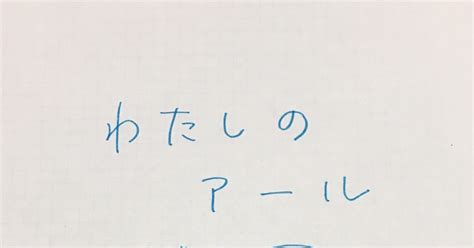 わたしの
アール